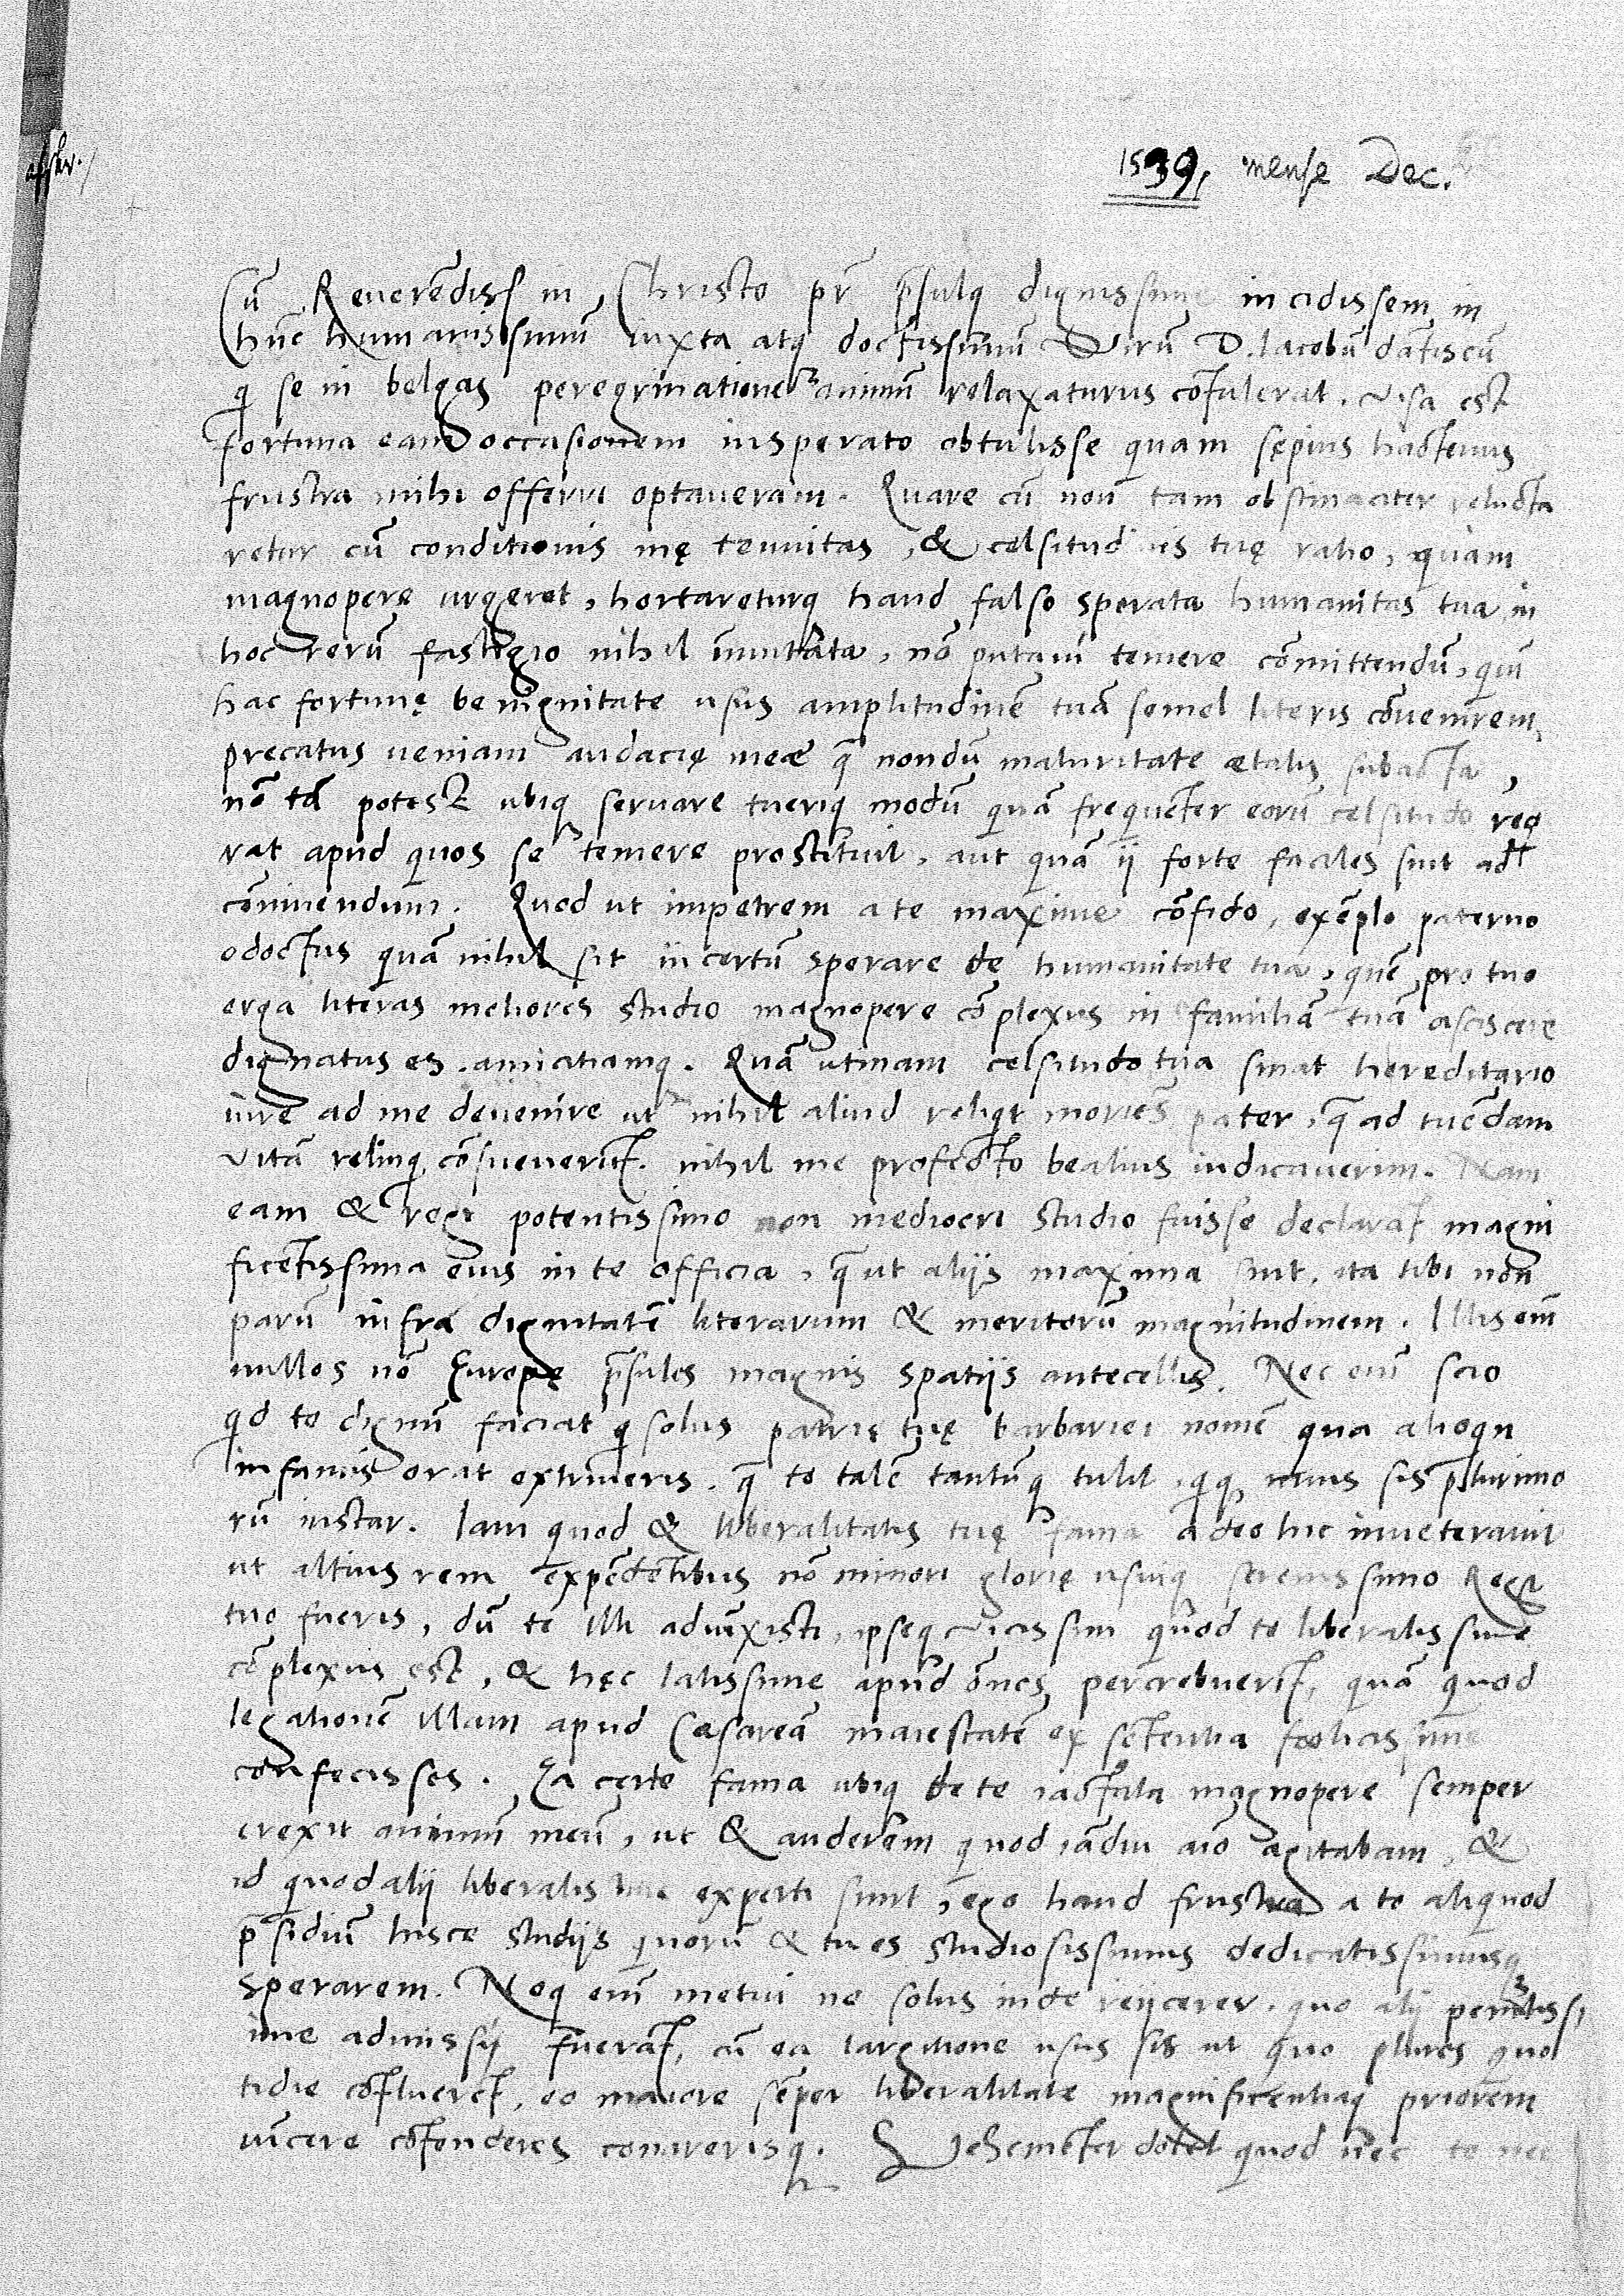 1539, mense Dec.
Cū Reverēdiss in Christo pr̄ p̄sulq dignissime incidissem in
hūc humanissimū iuxta atq doctissimū Virū D. Iacobū dātiscū
q se in belgas peregrinatione animū relaxaturus cōtulerat. visa est
fortuna eam occasionem insperato obtulisse quam sępius hactenus
frustra mihi offerri optaveram. Quare cū non tam obstinaciter relucta
retur cū conditionis męe tenuitas, & celsitudīs tuę ratio, quam
magnopere urgeret, hortareturq haud falso sperata humanitas tua, in
hoc rerū fastigio nihil īmutata, nō putavi temere cōmittendū, quī
hac fortunę benignitate usus amplitudinē tuā semel literis cōvenirem,
precatus ueniam audacię meæ q̄ nondū maturitate ætatis subacta,
nō tā potest ubiq servare tueriq modū quā frequēter eorū celsitudo req
rat apud quos se temere prostituit, aut quā ij forte faciles sint ad
connivendum. Quod ut impetrem a te maxime cōfido, exēplo paterno
edoctus quā nihil sit incertū sperare de humanitate tua, quē pro tuo
erga literas meliores studio magnopere cōplexus in familiā tuā asciscere
dignatus es amicitiamq. Quā utinam celsitudo tua sinat hereditario
iure ad me devenire ut nihil aliud reliqt moriēs pater, q̄ ad tuēdam
vitā relinq cōsueverūt. nihil me profecto beatius iudicaverim. Nam
eam & regi potentissimo non mediocri studio fuisse declarāt magni
ficētissima eius in te officia, q̄ ut alijs maxima sint, ita tibi non
parū infra dignitatē literarum & meritorū magnitudinem. Illis eīm
nullos nō Europę p̄sules magnis spatijs antecellis. Nec eīm scio
qd te dignū faciat q solus patrię tuę barbariei nomē qua alioqn
infamis erat exemeris. q̄ te talē tantūq tulit, qq unus sis plurimo
rū instar. Iam quod & liberalitatis tuę fama adeo hic inveteravit
ut altius rem expēdētibus nō minori glorię usuiq serenissimo Regi
tuo fueris, dū te illi adiūxisti, ipseq vicissim quod te liberalissime
cōplexus est, & hęc latissime apud om̄es percrebuerīt, quā quod
legationē illam apud Cæsareā maiestatē ex sētentia fœlicissime
confecisses. Ea certe fama ubiq de te iactata magnopere semper
erexit animū meū, ut & auderem quod iādiu aīo agitabam, &
id quod alij liberalissime experti sunt, ego haud frustra a te aliquod
p̄sidiū hisce studijs quorū & tu es studiosissimus dedicatissimusq
sperarem. Neq eīm metui ne solus inde reijcerer, quo alij
ime admissi fuerāt, cū ea largitione usus sis ut quo plures quo
tidie cōfluerēt, eo maiore sēper liberalitate magnificentiaq priorem
uīcere cōtenderes
quod nec te nec